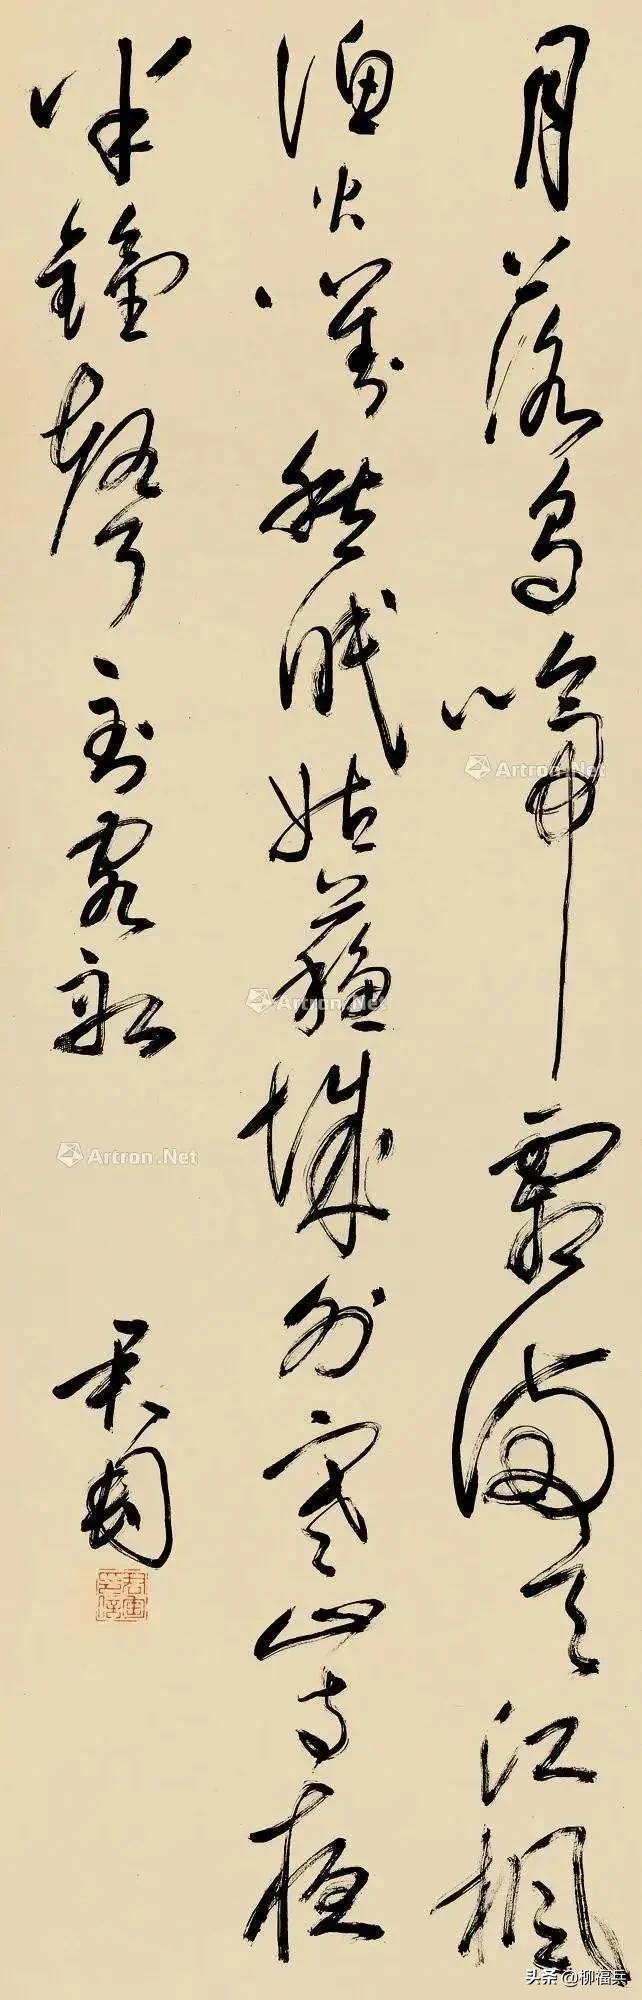 月落烏啼霜滿天江楓
漁火對愁眠姑蘇城外寒山寺夜
半鐘聲到客船
君匋
Artron.Net
Artron.Net
Artron.Net
头条 @柳福兵